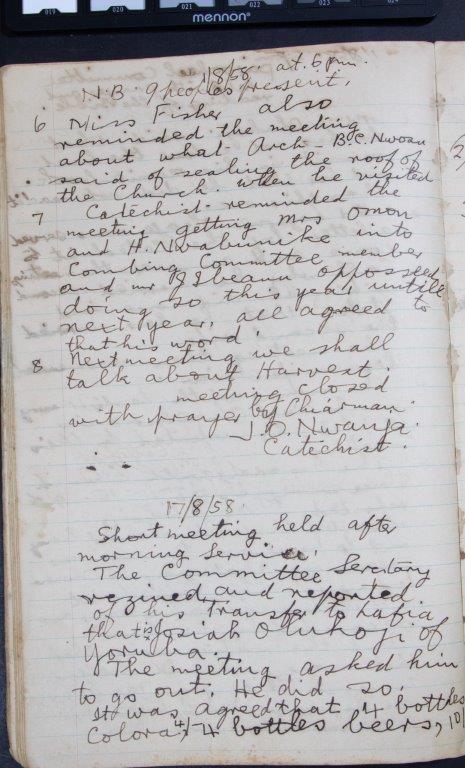 019 020 021 022 023
mennon
1/8/58. at. 6 pm.
N.B. 9 peoples present.
6 Miss Fisher also
reminded the meeting
about what Arch - B.C. Nwosu
said of sealing the roof of
the Church. when he visited
7 Catechist. reminded the
meeting getting Mrs Omon
and H. Nwabunike into
Combing Committee member
and mr R Ibeanu oppossed
doing so this year untill
next year, all agreed to
that his word.
8 Next meeting we shall
talk about Harvest.
meeting closed
with prayer by Chiarman
J. O. Nwanja.
Catechist.
17/8/58.
Short meeting held after
morning Service.
The Committee Secretary
rezined and reported
of his transfer to Lafia
that is Josiah Olukoji of
Yoruba.
The meeting asked him
to go out. He did so.
It was agreed that 4 bottles
Colora 4/ 4 bottles beers, 10/